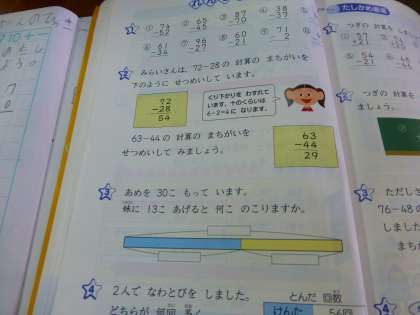 たしかめ問題
① 74
-52
② 65
-45
③ 87
-70
④ 38
-37
⑥ 61
-34
⑦ 96
-27
⑧ 60
-21
⑨ 71
- 2
2 みらいさんは、72-28の 計算の まちがいを
下のように せつめいして います。
72
-28
54
くり下がりを わすれて
います。十のくらいは
6-2=4に なります。
63-44の 計算の まちがいを
せつめいして みましょう。
63
-44
29
3 あめを 30こ もって います。
妹に 13こ あげると 何こ のこりますか。
4 2人で なわとびを しました。
とんだ 回数
けんた
つぎの 計算を
① 57
+21
⑤ 54
+21
つぎの 計算
ましょう。
ただしさ
76-48の
しました
まちが